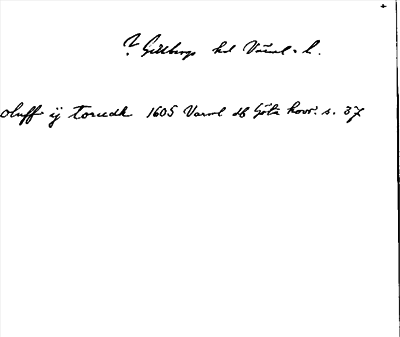 ? Gillbergs hd Värml. l.
oluff ij toruedh 1605 Värml df Götz kovr: s. 37